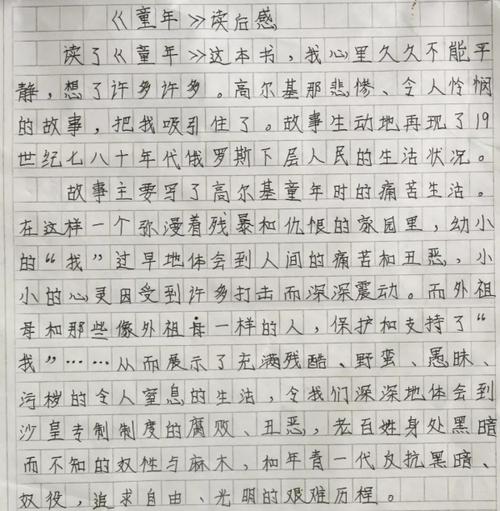 《童年》读后感
读了《童年》这本书，我心里久久不能平
静，想了许多许多。高尔基那悲惨、令人怜悯
的故事，把我吸引住了。故事生动地再现了19
世纪七八十年代俄罗斯下层人民的生活状况。
故事主要写了高尔基童年时的痛苦生活。
在这样一个弥漫着残暴和仇恨的家园里，幼小
的“我”过早地体会到人间的痛苦和丑恶，小
小的心灵因受到许多打击而深深震动。而外祖
母和那些像外祖母一样的人，保护和支持了“
我”……从而展示了充满残酷、野蛮、愚昧、
污秽的令人窒息的生活，令我们深深地体会到
沙皇专制制度的腐败、丑恶，老百姓身处黑暗
而不知的奴性与麻木，和年青一代反抗黑暗、
奴役，追求自由、光明的艰难历程。